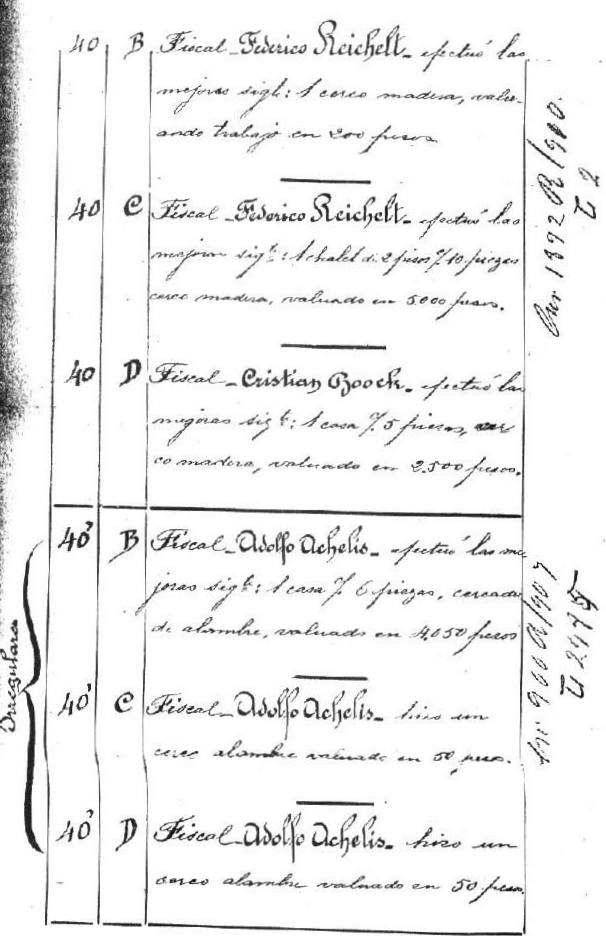 40 B Fiscal - Federico Reichelt - efectuó las
mejoras sigte: 1 cerco madera, valu-
ando trabajo en 200 pesos
40 C Fiscal - Federico Reichelt - efectuó las
mejoras sigte: 1 chalet di 2 pisos % 10 piezas
cerco madera, valuado en 5000 pesos.
40 D Fiscal - Cristian Boock - efectuó las
mejoras sigte: 1 casa % 5 piezas, cer
co madera, valuado en 2.500 pesos.
40' B Fiscal - Adolfo Achelis - efectuó las me
joras sigte: 1 casa % 6 piezas, cercado
de alambre, valuado en 4.050 pesos
40' C Fiscal - Adolfo Achelis - hizo un
cerco alambre valuado en 50 pesos.
40' D Fiscal - Adolfo Achelis - hizo un
cerco alambre valuado en 50 pesos.
Irregulares
1892 R/900.
T 2
900 A/907